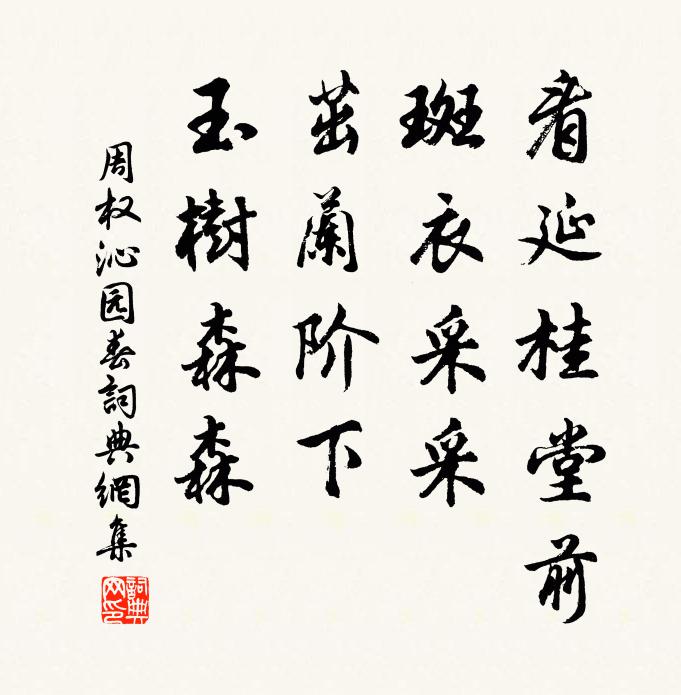 看延桂堂前
斑衣采采
茁蘭阶下
玉樹森森
周权沁园春詞典網集
詞典网印